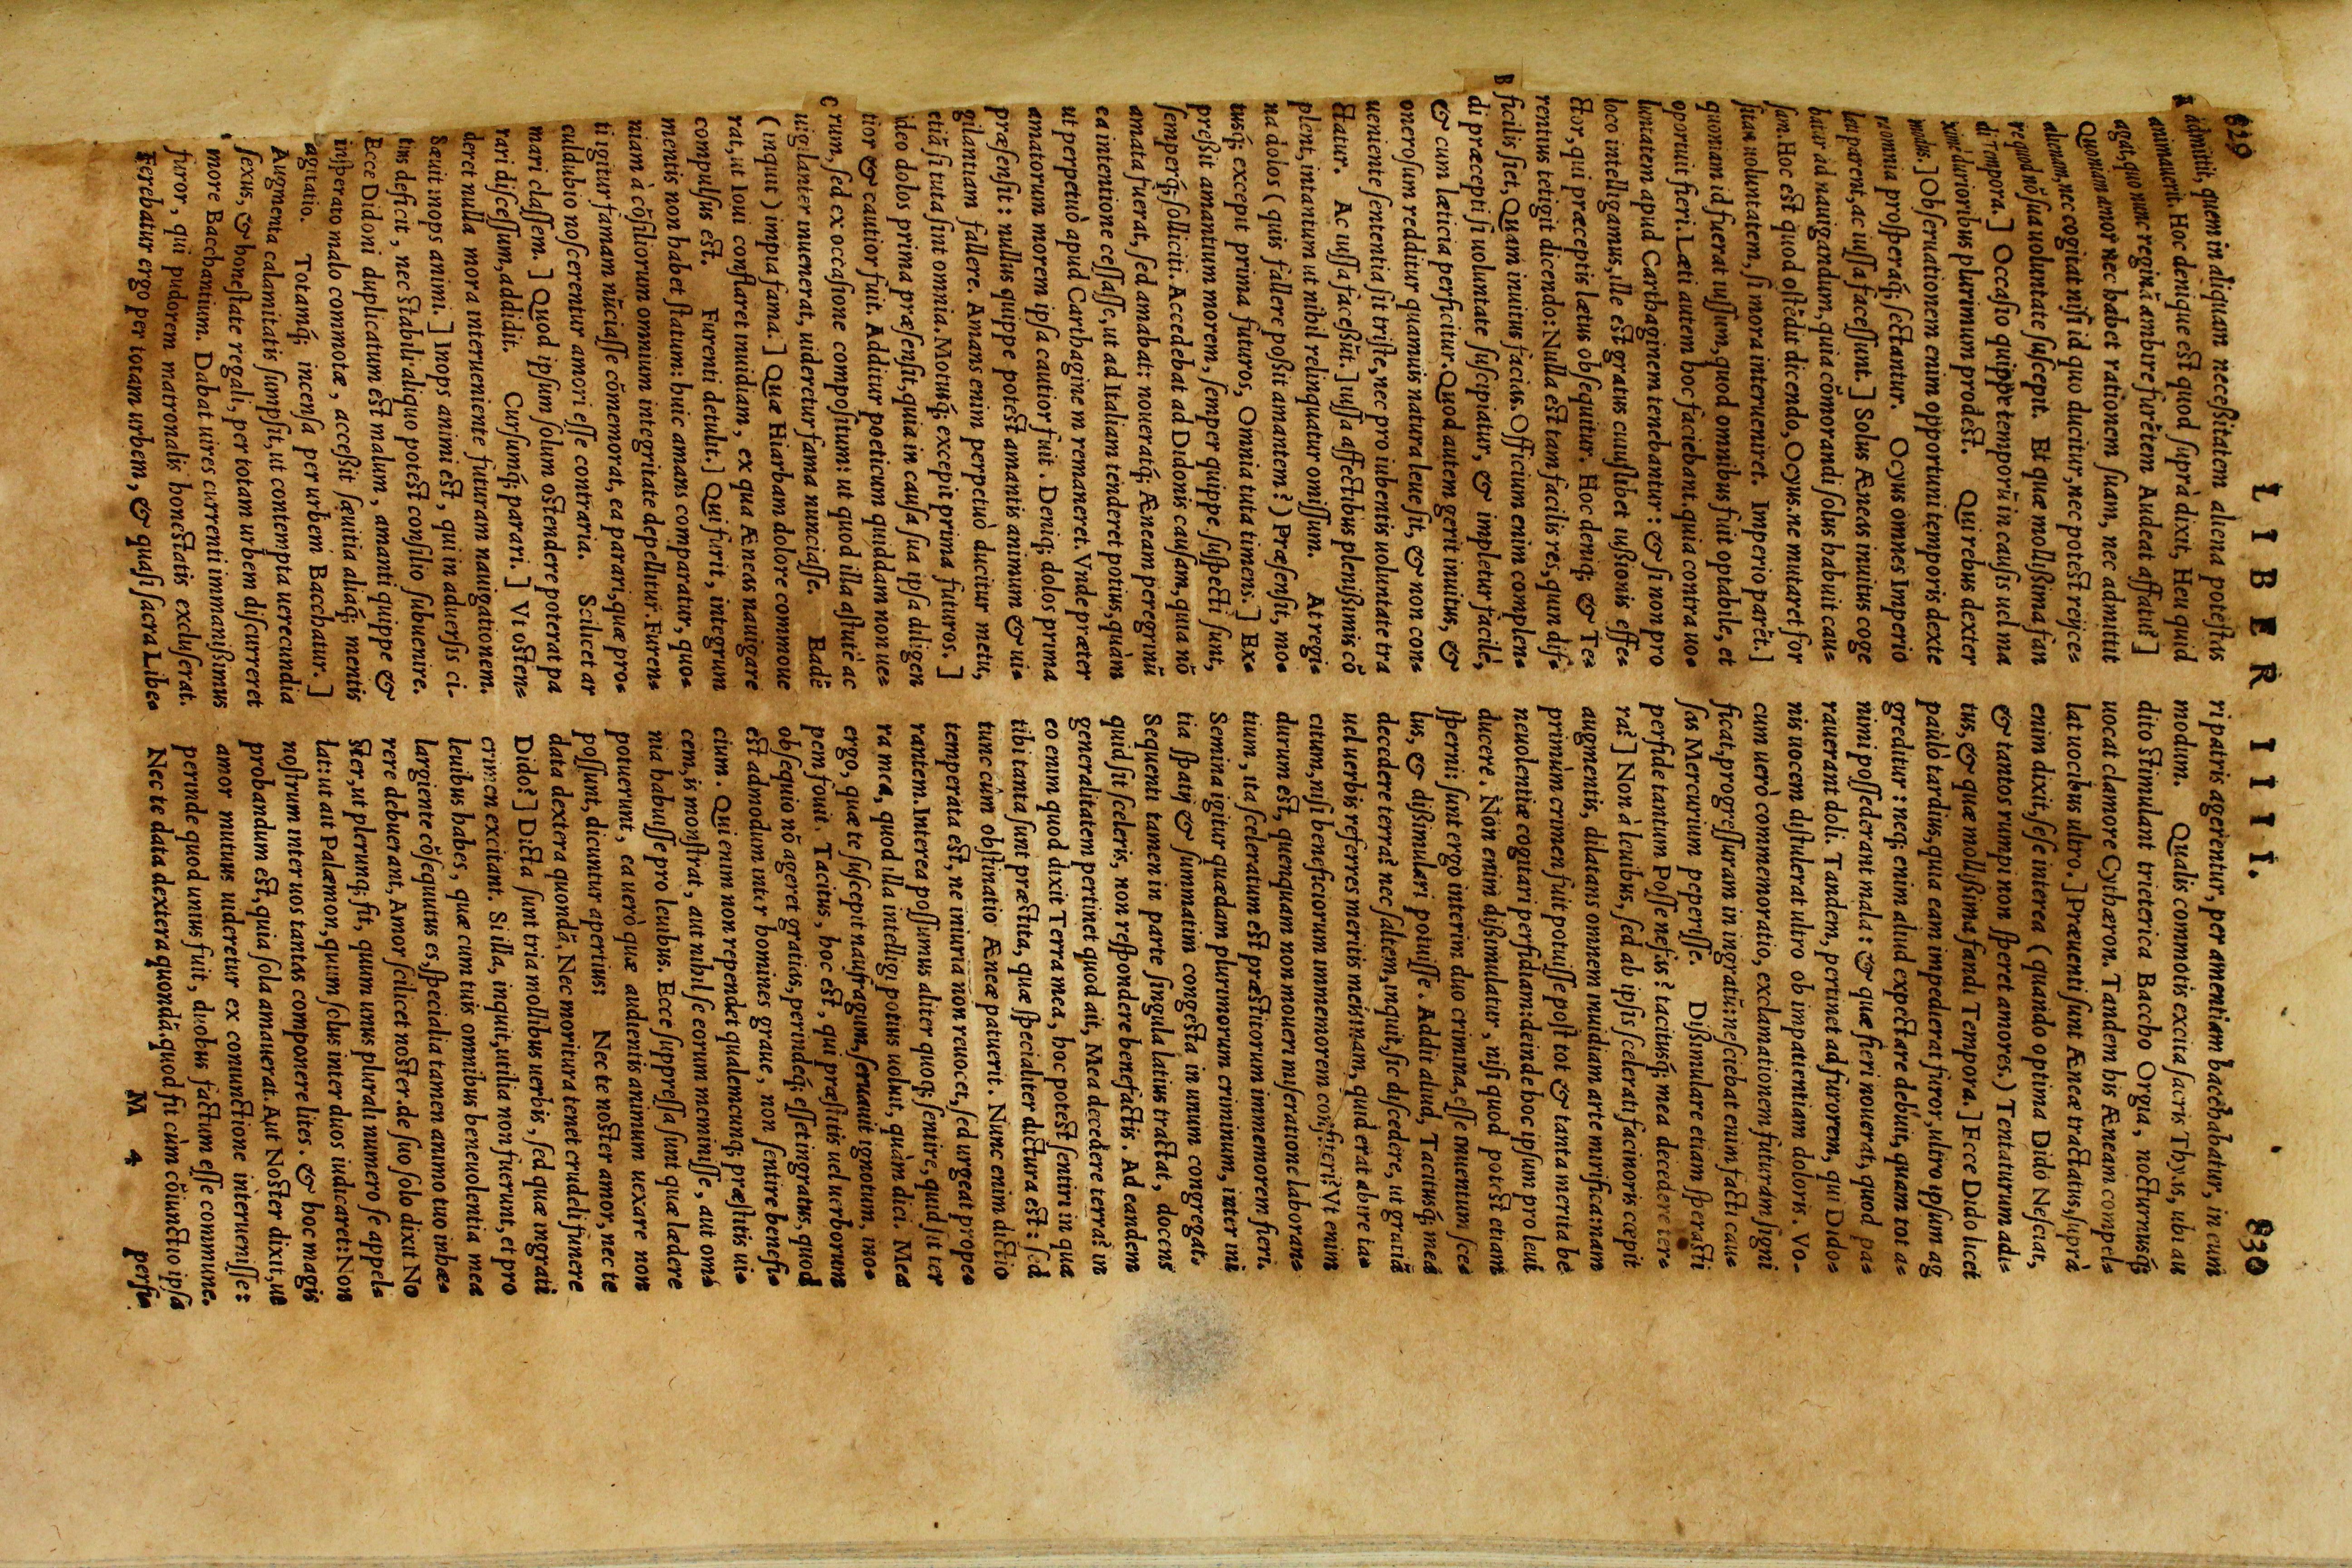 829 LIBER IIII. 830
A admittit, quem in aliquam neceßitatem aliena poteſtas
animauerit. Hoc denique eſt quod ſuprà dixit, Heu quid
agat, quo nunc reginã ambire furẽtem Audeat affatu? ]
Quoniam amor nec habet rationem ſuam, nec admittit
alienam, nec cogitat niſi id quo ducitur, nec poteſt reijce=
re quod nõ ſua uoluntate ſuſcepit. Et quæ mollißima fan
di tempora. ] Occaſio quippe temporũ in cauſis uel ma
ximè durioribus plurimum prodeſt. Qui rebus dexter
modus. ] Obſeruationem enim opportuni temporis dexte
r omnia proſperaq́; ſectantur. Ocyus omnes Imperio
læti parent, ac iuſſa faceſſunt. ] Solus Æneas inuitus coge
batur ad nauigandum, quia cõmorandi ſolus habuit cau=
ſam. Hoc eſt quod oſtẽdit dicendo, Ocyus. ne mutaret for
ſitan uoluntatem, ſi mora interueniret. Imperio parẽt. ]
quoniam id fuerat iuſſum, quod omnibus fuit optabile, et
oportuit fieri. Læti autem hoc faciebant. quia contra uo=
luntatem apud Carthaginem tenebantur: & ſi non pro
loco intelligamus, ille eſt gratus cuiuſlibet iußionis effe=
ctor, qui præceptis lætus obſequitur. Hoc deniq; & Te=
rentius tetigit dicendo: Nulla eſt tam facilis res, quin dif=
B ficilis fiet, Quam inuitus facias. Officium enim complen=
di præcepti ſi uoluntate ſuſcipiatur, & impletur facilè,
& cum læticia perficitur. Quod autem gerit inuitus, &
oneroſum redditur quamuis natura leue ſit, & non con=
ueniente ſententia ſit triſte, nec pro iubentis uoluntate tra
ctatur. Ac iuſſa faceßũt. ] iuſſa affectibus plenißimis cõ
plent, intantum ut nihil relinquatur omiſſum. At regi=
na dolos ( quis fallere poßit amantem? ) Præſenſit, mo=
tusq́; excepit prima futuros, Omnia tuta timens. ] Ex=
preßit amantium morem, ſemper quippe ſuſpecti ſunt,
ſemperq́; ſolliciti. Accedebat ad Didonis cauſam, quia nõ
amata fuerat, ſed amabat: noueratq́; Æneam peregrinũ
ea intentione ceſſaſſe, ut ad Italiam tenderet potius, quàm
ut perpetuò apud Carthaginem remaneret. Vnde præter
amatorum morem ipſa cautior fuit. Deniq; dolos prima
præſenſit: nullus quippe poteſt amantis animum & ui=
gilantiam fallere. Amans enim perpetuò ducitur metu,
etiã ſi tuta ſint omnia. Motusq́; excepit prima futuros. ]
ideo dolos prima præſenſit, quia in cauſa ſua ipſa diligen
tior & cautior fuit. Additur poeticum quiddam non ue=
C rum, ſed ex occaſione compoſitum: ut quod illa aſtutè ac
uigilanter inuenerat, uideretur fama nunciaſſe. Eadẽ
( inquit ) impia fama. ] Quæ Hiarbam dolore commoue
rat, ut Ioui conflaret inuidiam, ex qua Æneas nauigare
compulſus eſt. Furenti detulit. ] Qui furit, integrum
mentis non habet ſtatum: huic amans comparatur, quo=
niam à cõſiliorum omnium integritate depellitur. Furen=
ti igitur famam nũciaſſe cõmemorat, ea parari, quæ pro=
culdubio noſcerentur amori eſſe contraria. Scilicet ar
mari claſſem. ] Quod ipſum ſolum oſtendere poterat pa
rari diſceſſum, addidit. Curſumq́; parari. ] Vt oſten=
deret nulla mora interueniente futuram nauigationem.
Seuit inops animi. ] Inops animi eſt, qui in aduerſis ci=
tius deficit, nec ſtabili aliquo poteſt conſilio ſubuenire.
Ecce Didoni duplicatum eſt malum, amanti quippe &
inſperato malo commotæ, acceßit ſæuitia aliaq́; mentis
agitatio. Totamq́; incenſa per urbem Bacchatur. ]
Augmenta calamitatis ſumpſit, ut contempta uerecundia
ſexus, & honeſtate regali, per totam urbem diſcurreret
more Bacchantium. Dabat uires currenti immanißimus
furor, qui pudorem matronalis honeſtatis excluſerat.
Ferebatur ergo per totam urbem, & quaſi ſacra Libe=
ri patris agerentur, per amentiam bacchabatur, in eum
modum. Qualis commotis excita ſacris Thyas, ubi au
dito ſtimulant trieterica Baccho Orgia, nocturnusq́;
uocat clamore Cythæron. Tandem his Æneam compel=
lat uocibus ultro. ] Præuenti ſunt Æneæ tractatus, ſuprà
enim dixit, ſeſe interea ( quando optima Dido Neſciat,
& tantos rumpi non ſperet amores. ) Tentaturum adi=
tus, & quæ mollißima fandi Tempora. ] Ecce Dido licet
paulò tardius, quia eam impedierat furor, ultro ipſum ag
greditur: neq; enim aliud expectare debuit, quam tot a=
nimi poſſederant mala: & quæ fieri nouerat, quod pa=
rauerant doli. Tandem, pertinet ad furorem, qui Dido=
nis uocem diſtulerat ultro ob impatientiam doloris. Vo=
cum uerò commemoratio, exclamationem futuram ſigni
ficat, progreſſuram in ingratũ: neſciebat enim facti cau=
ſas Mercurium peperiſſe. Dißimulare etiam ſperaſti
perfide tantum Poſſe nefas? tacitusq́; mea decedere ter=
ra? ] Non à leuibus, ſed ab ipſis ſcelerati facinoris cœpit
augmentis, dilatans omnem inuidiam arte mirifica: nam
primùm crimen fuit potuiſſe poſt tot & tanta merita be
neuolentiæ cogitari perfidiam: deinde hoc ipſum pro leui
ducere. Non enim dißimulatur, niſi quod poteſt etiam
ſperni: ſunt ergo interim duo crimina, eſſe inuentum ſce=
lus, & dißimulari potuiſſe. Addit aliud, Tacitusq́; mea
decedere terra? nec ſaltem, inquit, ſic diſcedere, ut gratiã
uel uerbis referres meritis meis: nam, quid erat abire ta=
citum, niſi beneficiorum immemorem conſpici? Vt enim
durum eſt, quenquam non moueri miſeratione laboran=
tium, ita ſceleratum eſt præſtitorum immemorem fieri.
Semina igitur quædam plurimorum criminum, inter ini
tia ſpatij & ſummatim congeſta in unum congregat.
Sequenti tamen in parte ſingula latius tractat, docens
quid ſit ſceleris, non reſpondere benefactis. Ad eandem
generalitatem pertinet quod ait, Mea decedere terra? in
eo enim quod dixit Terra mea, hoc poteſt ſentiri in qua
tibi tanta ſunt præſtita, quæ ſpecialiter dictura eſt: ſed
tunc cùm obſtinatio Æneæ patuerit. Nunc enim dictio
temperata eſt, ne iniuria non reuocet, ſed urgeat prope=
rantem. Interea poſſumus aliter quoq; ſentire, quid ſit ter
ra mea, quod illa intelligi potius uoluit, quàm dici. Mea
ergo, quæ te ſuſcepit naufragum, ſeruauit ignotum, ino=
pem fouit. Tacitus, hoc eſt, qui præſtitis uel uerborum
obſequio nõ ageret gratias, perindeq́; eſſet ingratus, quod
eſt admodum inter homines graue, non ſentire benefi=
cium. Qui enim non rependet qualemcunq; præſtitis ui=
cem, is monſtrat, aut nihil ſe eorum meminiſſe, aut om=
nia habuiſſe pro leuibus. Ecce ſuppreſſa ſunt quæ lædere
potuerunt, ea uerò quæ audientis animum uexare non
poſſunt, dicuntur apertius: Nec te noſter amor, nec te
data dextera quondã, Nec moritura tenet crudeli funere
Dido? ] Dicta ſunt tria mollibus uerbis, ſed quæ ingrati
crimen excitant. Si illa, inquit, utilia non fuerunt, et pro
leuibus habes, quæ cum tuis omnibus beneuolentia mea
largiente cõſequutus es, ſpecialia tamen animo tuo inhæ=
rere debuerant, Amor ſcilicet noſter. de ſuo ſolo dixit No
ſter, ut plerunq; fit, quum unus plurali numero ſe appel=
lat: ut ait Palæmon, quum ſolus inter duos iudicaret: Non
noſtrum inter uos tantas componere lites. & hoc magis
probandum eſt, quia ſola amauerat. Aut Noſter dixit, ut
amor mutuus uideretur ex coniunctione interueniſſe:
perinde quod unius fuit, duobus factum eſſe commune.
Nec te data dextera quondã. quod fit cùm cõiunctio ipſa
M 4 perfi=